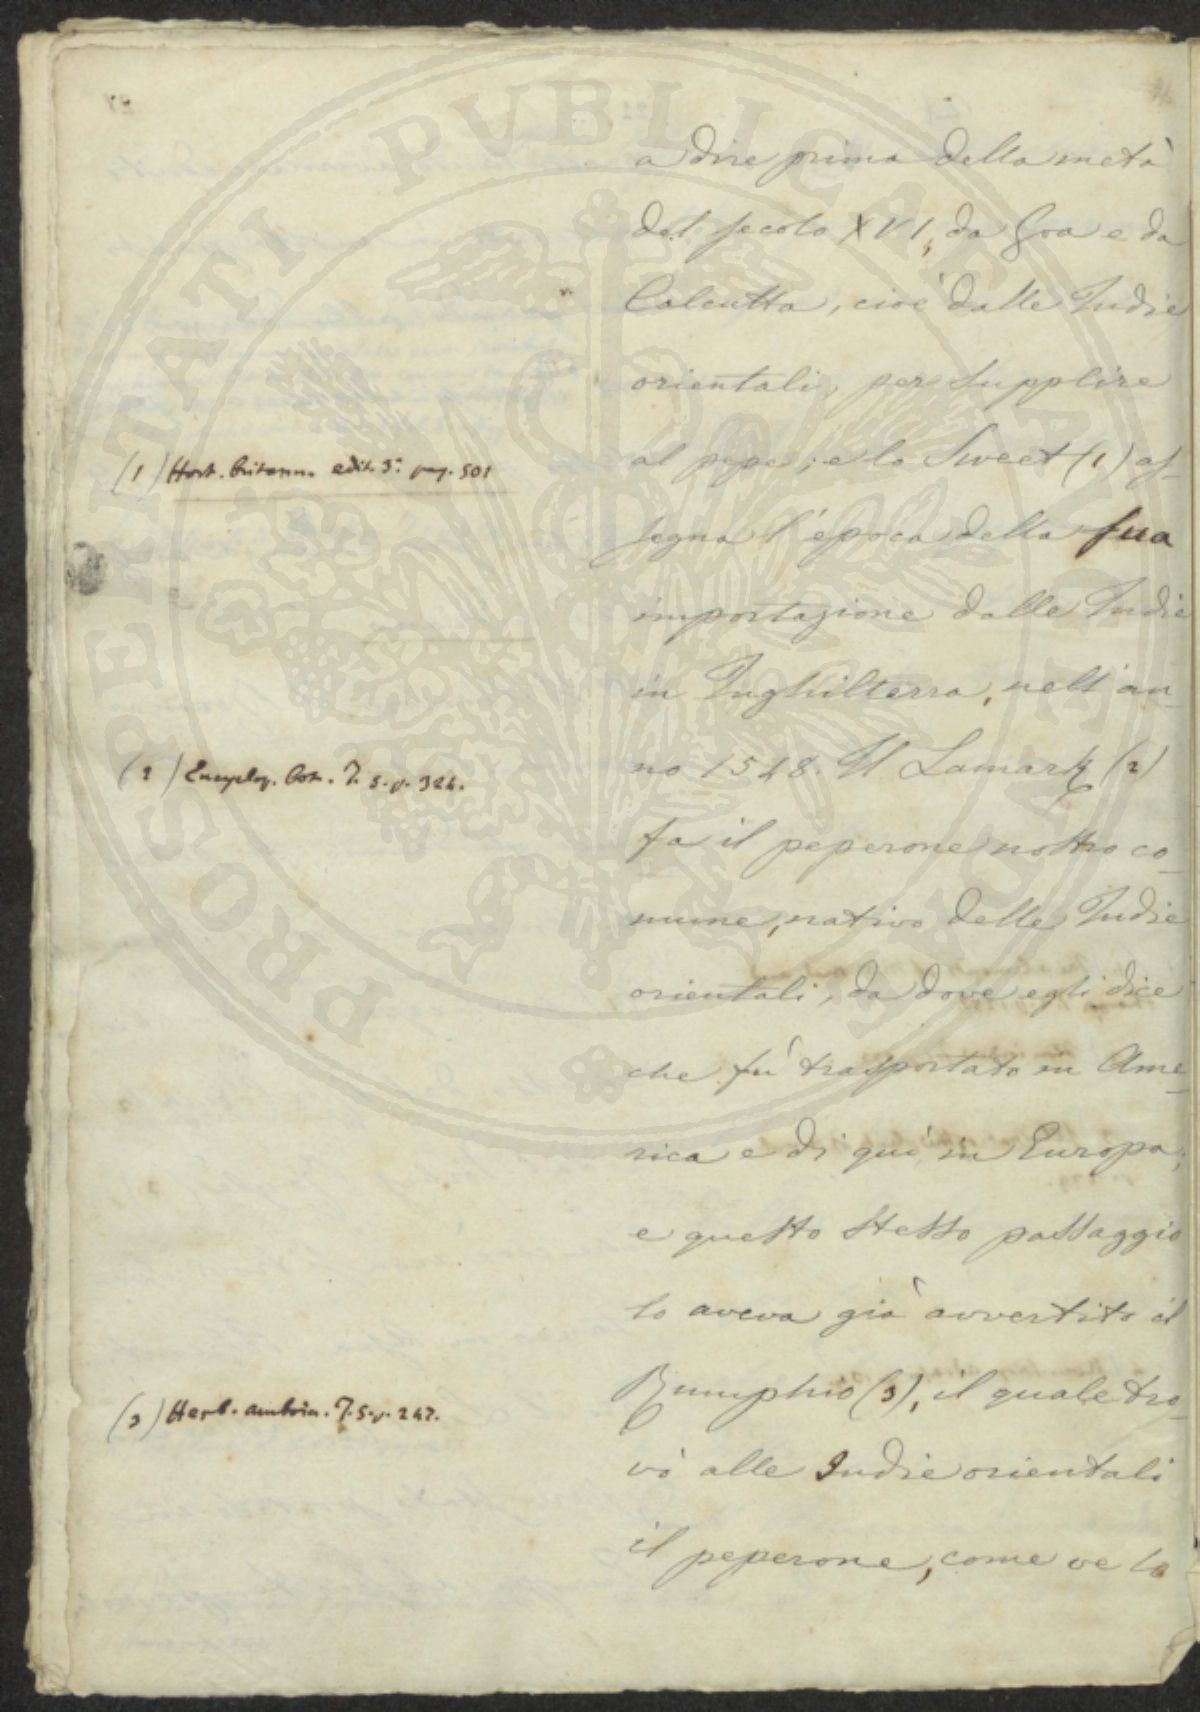 a dire prima della metà
del secolo XVI, da Goa e da
Calcutta, cioè dalle Indie
orientali, per supplire
al pepe; e lo Sweet (1) as-
segna l'epoca della sua
importazione dalle Indie
in Inghilterra, nell'an-
no 1548. Il Lamark (2)
fa il peperone nostro co-
mune, nativo delle Indie
orientali, da dove egli dice
che fù trasportato in Ame-
rica e di quì in Europa;
e questo stesso passaggio
lo aveva già avvertito il
Rumphio (3), il quale tro-
vò alle Indie orientali
il peperone, come ve lo
(1) Hort. Britann. edit. 3.ª pag. 501
(2) Encyclop. Bot. T. 5. p. 324.
(3) Herb. amboin. T. 5. p. 247.
PROSPERITATI PUBLICAE AUGENDAE